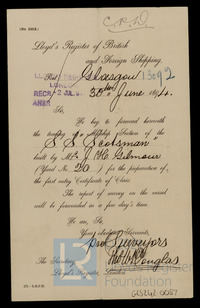 C.P.D.
Lloyd's Register of British
and Foreign Shipping.
Port Glasgow 13092
RECD 2 JUL 9
30th June 1894.
Sir,
We beg to forward herewith
the Midship Section of the
"S S Scotsman"
built by Mr. J. H. Gilmour
(Yard No. 20) for the preparation of
the first entry Certificate of Class.
The report of survey on the vessel
will be forwarded in a few day's time.
We are, Sir,
Your obedient Servants,
pro Surveyors
Douglas
The Secretary
Lloyd's Register, London.
Foundation